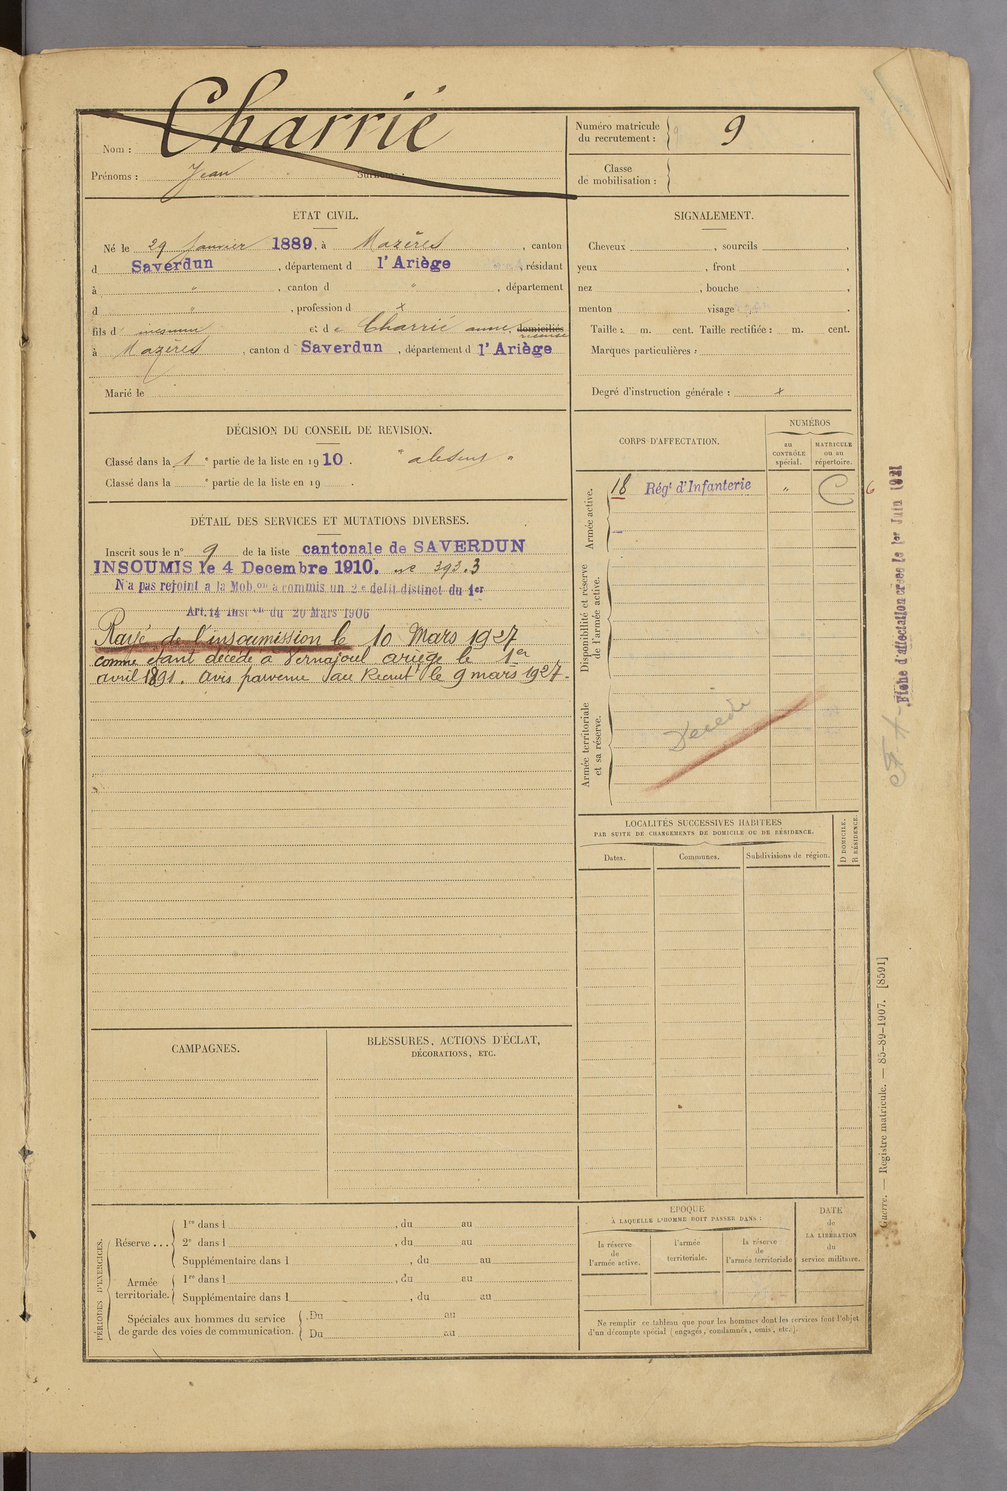 Charrié
Nom :
Prénoms : Jean Surnoms :
Numéro matricule
du recrutement : 9
Classe
de mobilisation :
ETAT CIVIL.
Né le 29 Janvier 1889, à Mazères, canton
d Saverdun, département d l'Ariège, résidant
à " , canton d " , département
d " , profession d x
fils d inconnu et de Charrié anne, domiciliés
à Mazères, canton d Saverdun, département d l'Ariège
Marié le
SIGNALEMENT.
Cheveux , sourcils ,
yeux , front ,
nez , bouche ,
menton visage .
Taille : m. cent. Taille rectifiée : m. cent.
Marques particulières :
Degré d'instruction générale : x
DÉCISION DU CONSEIL DE REVISION.
Classé dans la 1 e partie de la liste en 1910. " absent "
Classé dans la e partie de la liste en 19 .
DÉTAIL DES SERVICES ET MUTATIONS DIVERSES.
Inscrit sous le n° 9 de la liste cantonale de SAVERDUN
INSOUMIS le 4 Decembre 1910. n° 393.3
N'a pas rejoint a la Mob.on a commis un 2e delit distinct du 1er
Art. 14 Inst on du 20 Mars 1906
Rayé de l'insoumission le 10 Mars 1927
comme étant décédé à Vernajoul ariège le 1er
avril 1891. avis parvenu au Recrut t le 9 mars 1927.
CORPS D'AFFECTATION.
NUMÉROS
au
CONTRÔLE
spécial.
MATRICULE
ou au
répertoire.
Armée active.
18 Régt d'Infanterie " C 6
Disponibilité et réserve
de l'armée active.
Armée territoriale
et sa réserve.
Décédé
Fiche d'affectation créée le 1er Juin 1921
LOCALITÉS SUCCESSIVES HABITÉES
PAR SUITE DE CHANGEMENTS DE DOMICILE OU DE RÉSIDENCE.
Dates.
Communes.
Subdivisions de région.
D DOMICILE.
R RÉSIDENCE.
CAMPAGNES.
BLESSURES, ACTIONS D'ÉCLAT,
DÉCORATIONS, ETC.
PÉRIODES D'EXERCICES.
Réserve ...
1re dans l , du au
2e dans l , du au
Supplémentaire dans l , du au
Armée
territoriale.
1re dans l , du au
Supplémentaire dans l , du au
Spéciales aux hommes du service
de garde des voies de communication.
Du au
Du au
EPOQUE
À LAQUELLE L'HOMME DOIT PASSER DANS :
la réserve
de
l'armée active.
l'armée
territoriale.
la réserve
de
l'armée territoriale
DATE
de
LA LIBÉRATION
du
service militaire.
Ne remplir ce tableau que pour les hommes dont les services font l'objet
d'un décompte spécial (engagés, condamnés, omis, etc.).
Guerre. — Registre matricule. — 85-89-1907. [8591]